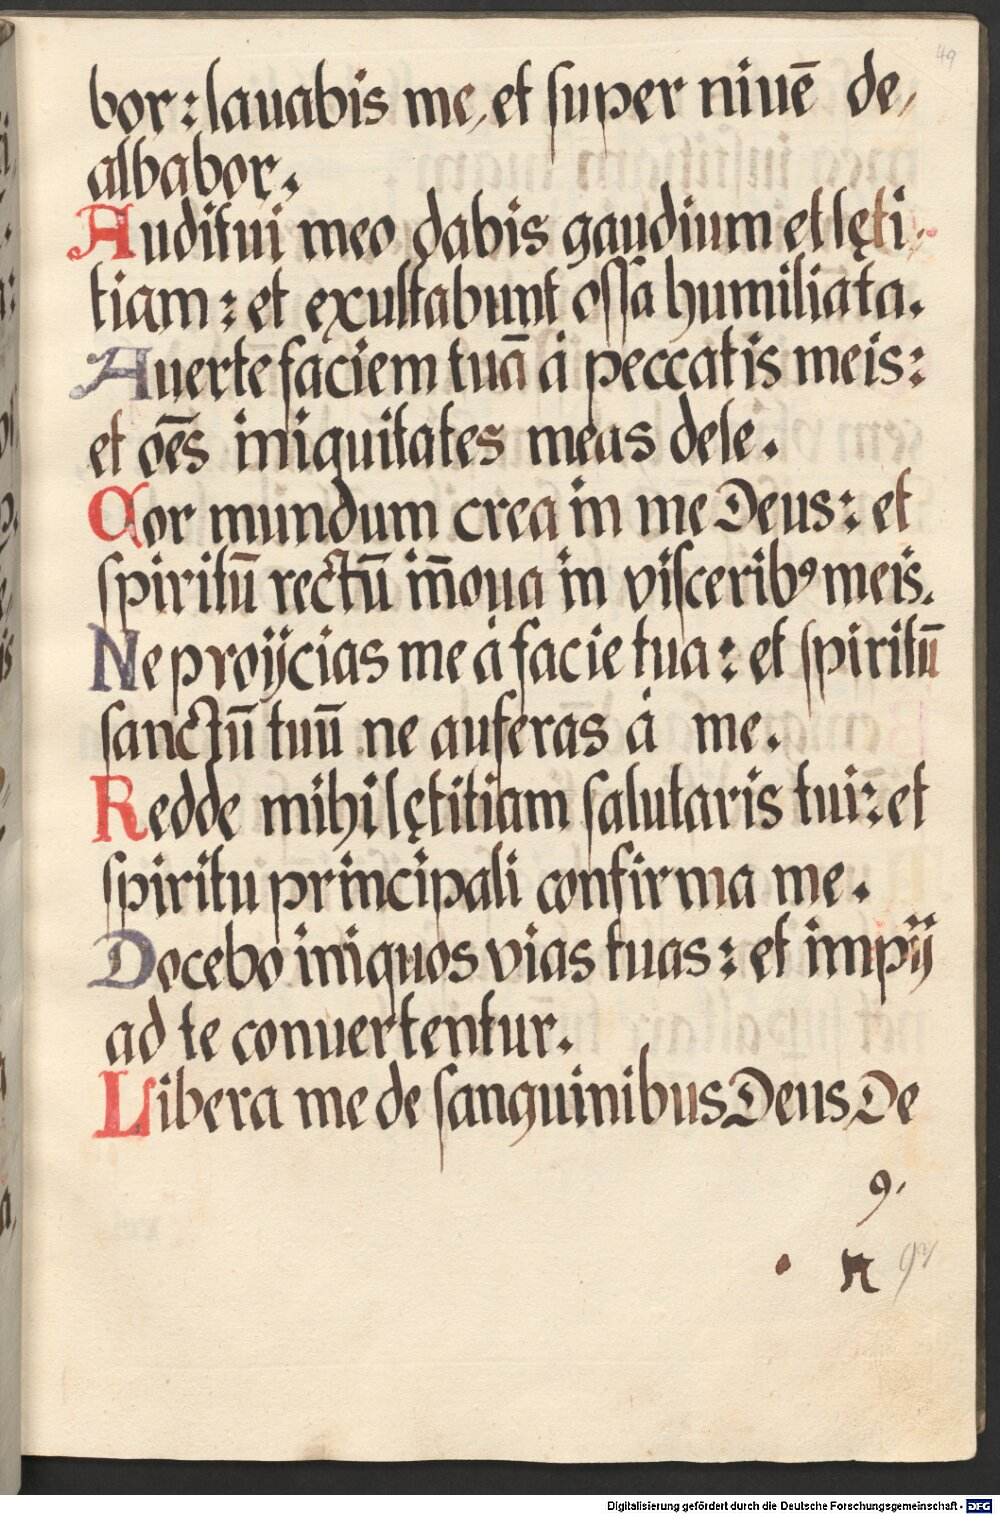 49
bor : lauabis me, et super niuē de,
albabor.
Auditui meo dabis gaudium et lęti,
tiam : et exultabunt ossa humiliata.
Auerte faciem tuā à peccatis meis :
et oēs iniquitates meas dele.
Cor mundum crea in me Deus : et
spiritū rectū īnoua in visceribꝰ meis.
Ne proijcias me à facie tua : et spiritū
sanctū tuū ne auferas à me.
Redde mihi lętitiam salutaris tui : et
spiritu principali confirma me.
Docebo iniquos vias tuas : et impij
ad te conuertentur.
Libera me de sanguinibus Deus De
9.
Digitalisierung gefördert durch die Deutsche Forschungsgemeinschaft - DFG